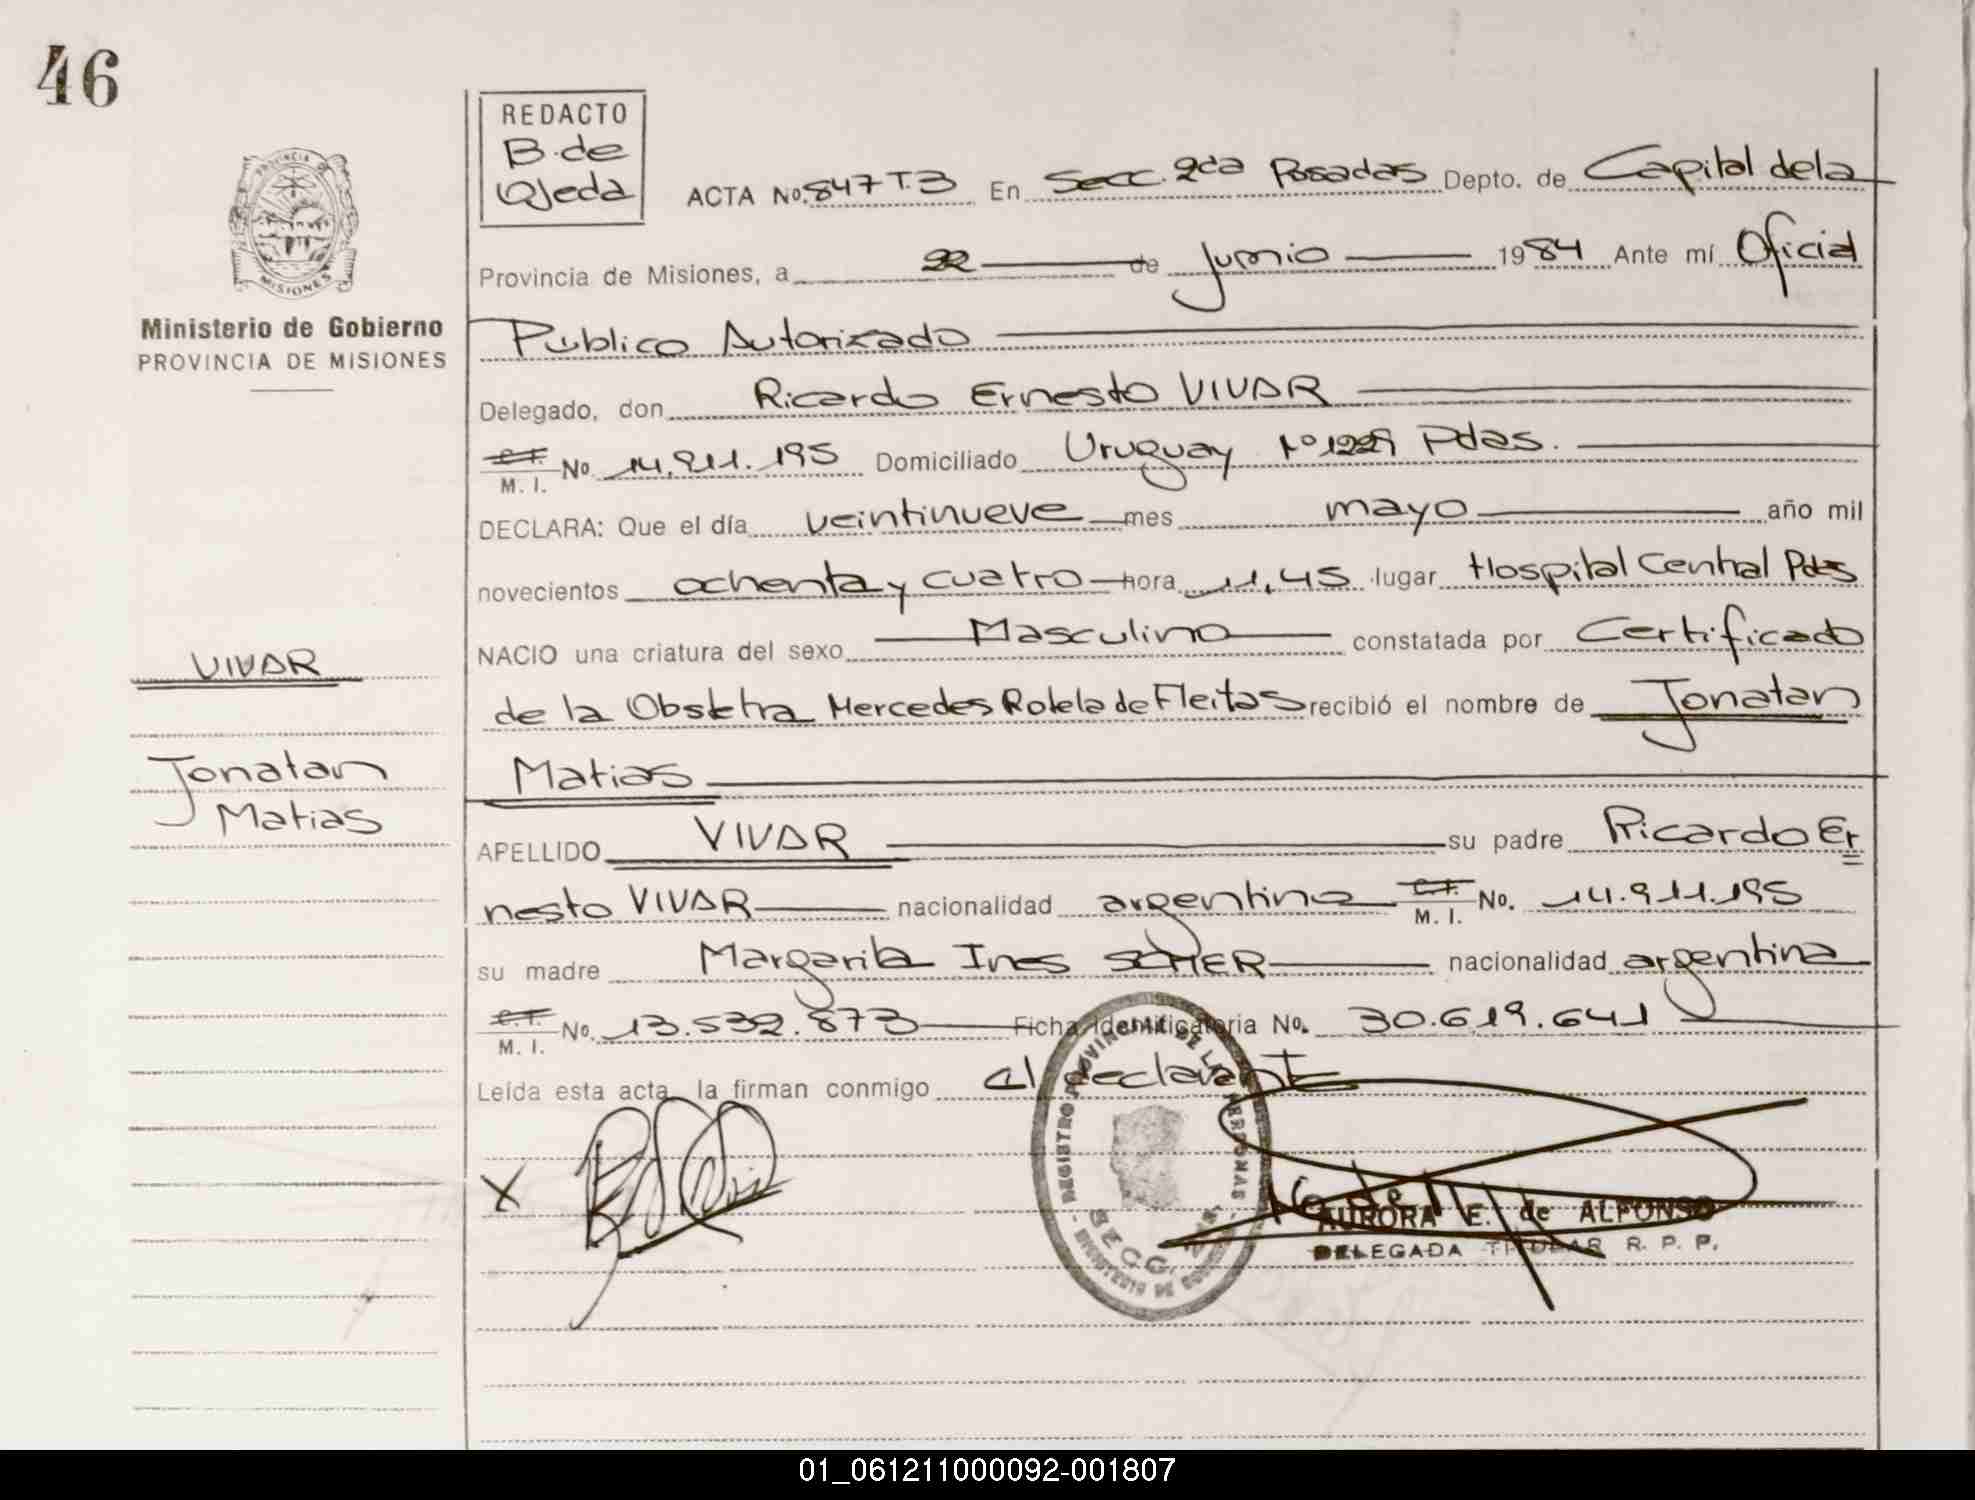 46
REDACTO
B. de
Ojeda
ACTA No. 847 T.3 En Secc. 2da Posadas Depto. de Capital de la
Provincia de Misiones, a 22 de Junio 1984 Ante mí Oficial
Ministerio de Gobierno
PROVINCIA DE MISIONES
Público Autorizado
Delegado, don Ricardo Ernesto VIVAR
C.I. M. I. No. 14.911.195 Domiciliado Uruguay Nº 1229 Pdas.
DECLARA: Que el día veintinueve mes mayo año mil
novecientos ochenta y cuatro hora 11,45 lugar Hospital Central Pdas
NACIO una criatura del sexo Masculino constatada por Certificado
VIVAR
de la Obstetra Mercedes Rotela de Fleitas recibió el nombre de Jonatan
Matias
Jonatan
Matias
APELLIDO VIVAR su padre Ricardo Er
nesto VIVAR nacionalidad argentina C.I. M. I. No. 14.911.195
su madre Margarita Ines nacionalidad argentina
C.I. M. I. No. 13.532.873 Ficha Identificatoria No. 30.619.641
Leída esta acta, la firman conmigo el declarante
X
REGISTRO PROVINCIAL DE LAS PERSONAS
SECC.
MINISTERIO DE GOBIERNO
AURORA E. de ALFONSO
DELEGADA TITULAR R. P. P.
01_061211000092-001807